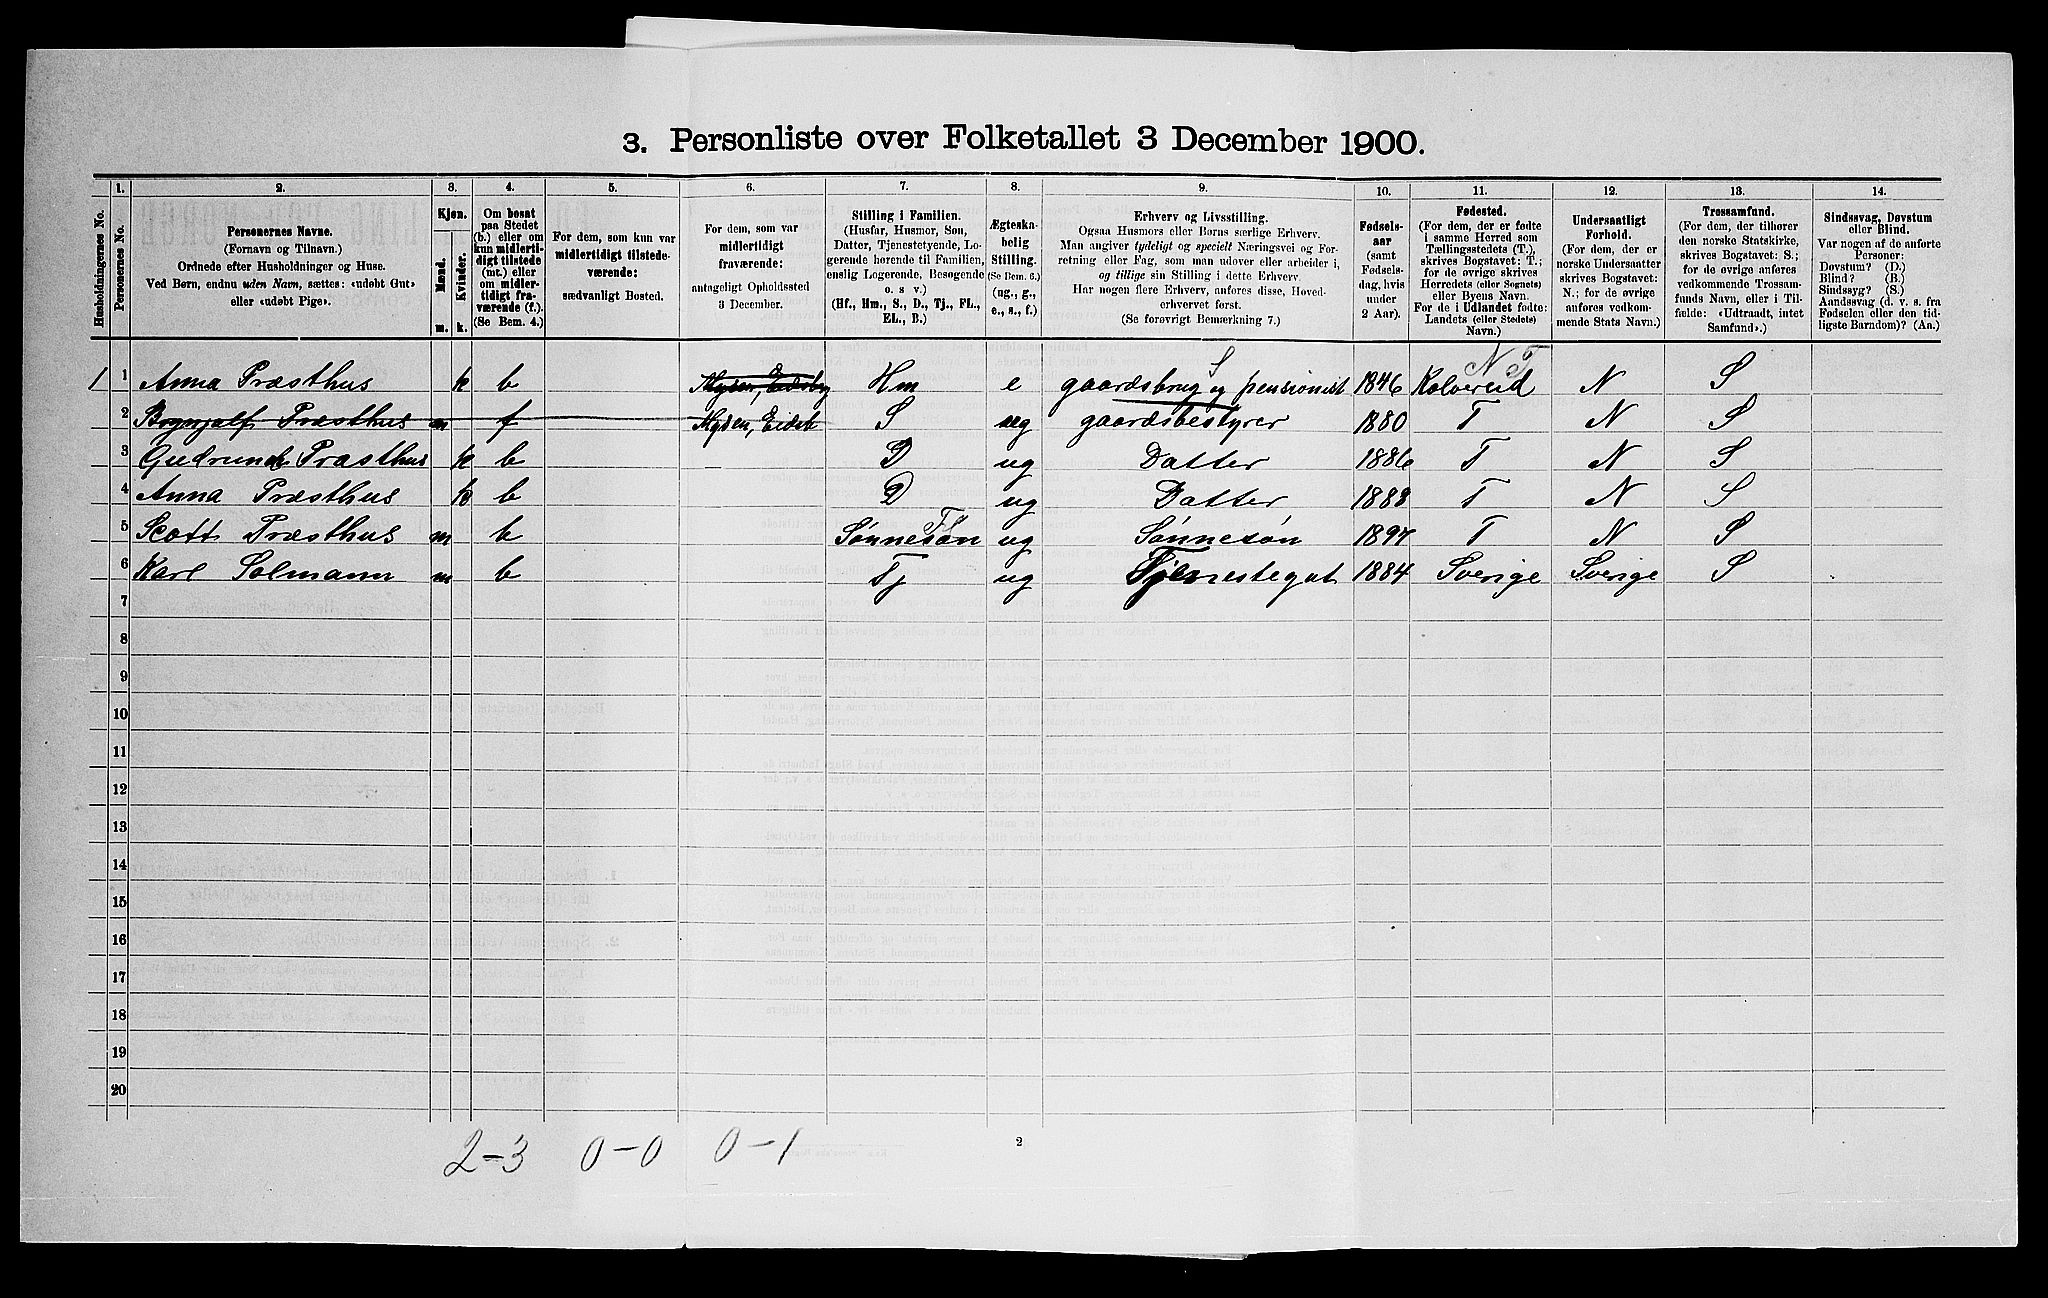 3. Personliste over Folketallet 3 December 1900.
Husholdningernes No.
1.
Personernes No.
2.
Personernes Navne.
(Fornavn og Tilnavn.)
Ordnede efter Husholdninger og Huse.
Ved Børn, endnu uden Navn, sættes: «udøbt Gut»
eller «udøbt Pige».
3.
Kjøn.
Mænd.
Kvinder.
m.
k.
4.
Om bosat
paa Stedet
(b.) eller om
kun midlerti-
digt tilstede
(mt.) eller
om midler-
tidigt fra-
værende (f.).
(Se Bem. 4.)
5.
For dem, som kun var
midlertidigt tilstede-
værende:
sædvanligt Bosted.
6.
For dem, som var
midlertidigt
fraværende:
antageligt Opholdssted
3 December.
7.
Stilling i Familien.
(Husfar, Husmor, Søn,
Datter, Tjenestetyende, Lo-
gerende hørende til Familien,
enslig Logerende, Besøgende
o. s v.)
(Hf., Hm., S., D., Tj., FL.,
EL., B.)
8.
Ægteska-
belig
Stilling.
(Se Bem. 6.)
(ug., g.,
e., s., f.)
9.
Erhverv og Livsstilling.
Ogsaa Husmors eller Børns særlige Erhverv.
Man angiver tydeligt og specielt Næringsvei og For-
retning eller Fag, som man udøver eller arbeider i,
og tillige sin Stilling i dette Erhverv.
Har nogen flere Erhverv, anføres disse, Hoved-
erhvervet først.
(Se forøvrigt Bemærkning 7.)
10.
Fødsels-
aar
(samt
Fødsels-
dag, hvis
under
2 Aar).
11.
Fødested.
(For dem, der er fødte
i samme Herred som
Tællingsstedets (T.),
skrives Bogstavet: T.;
for de øvrige skrives
Herredets (eller Sognets)
eller Byens Navn.
For de i Udlandet fødte:
Landets (eller Stedets)
Navn.)
12.
Undersaatligt
Forhold.
(For dem, der er
norske Undersaatter
skrives Bogstavet:
N.; for de øvrige
anføres vedkom-
mende Stats Navn.)
13.
Trossamfund.
(For dem, der tilhører
den norske Statskirke,
skrives Bogstavet: S.;
for de øvrige anføres
vedkommende Trossam-
funds Navn, eller i Til-
fælde: «Udtraadt, intet
Samfund».)
14.
Sindssvag, Døvstum
eller Blind.
Var nogen af de anførte
Personer:
Døvstum? (D.)
Blind? (B.)
Sindssyg? (S.)
Aandssvag (d. v. s. fra
Fødselen eller den tid-
ligste Barndom)? (An.)
S N T
1 1 Anna Præsthus k b Mysen, Eidsby Hm e gaardsbrug og pensionist 1846 Kolvereid N S
2 Brynjulf Præsthus m f Mysen, Eidsb S ug gaardsbestyrer 1880 T N S
3 Gudrund Præsthus k b D ug Datter 1886 T N S
4 Anna Præsthus k b D ug Datter 1888 T N S
5 Scott Præsthus m b Sønnesøn ug Sønnesøn 1897 T N S
6 Karl Solmann m b Tj ug Tjenestegut 1884 Sverige Sverige S
7
8
9
10
11
12
13
14
15
16
17
18
19
20
2-3 0-0 0-1
2